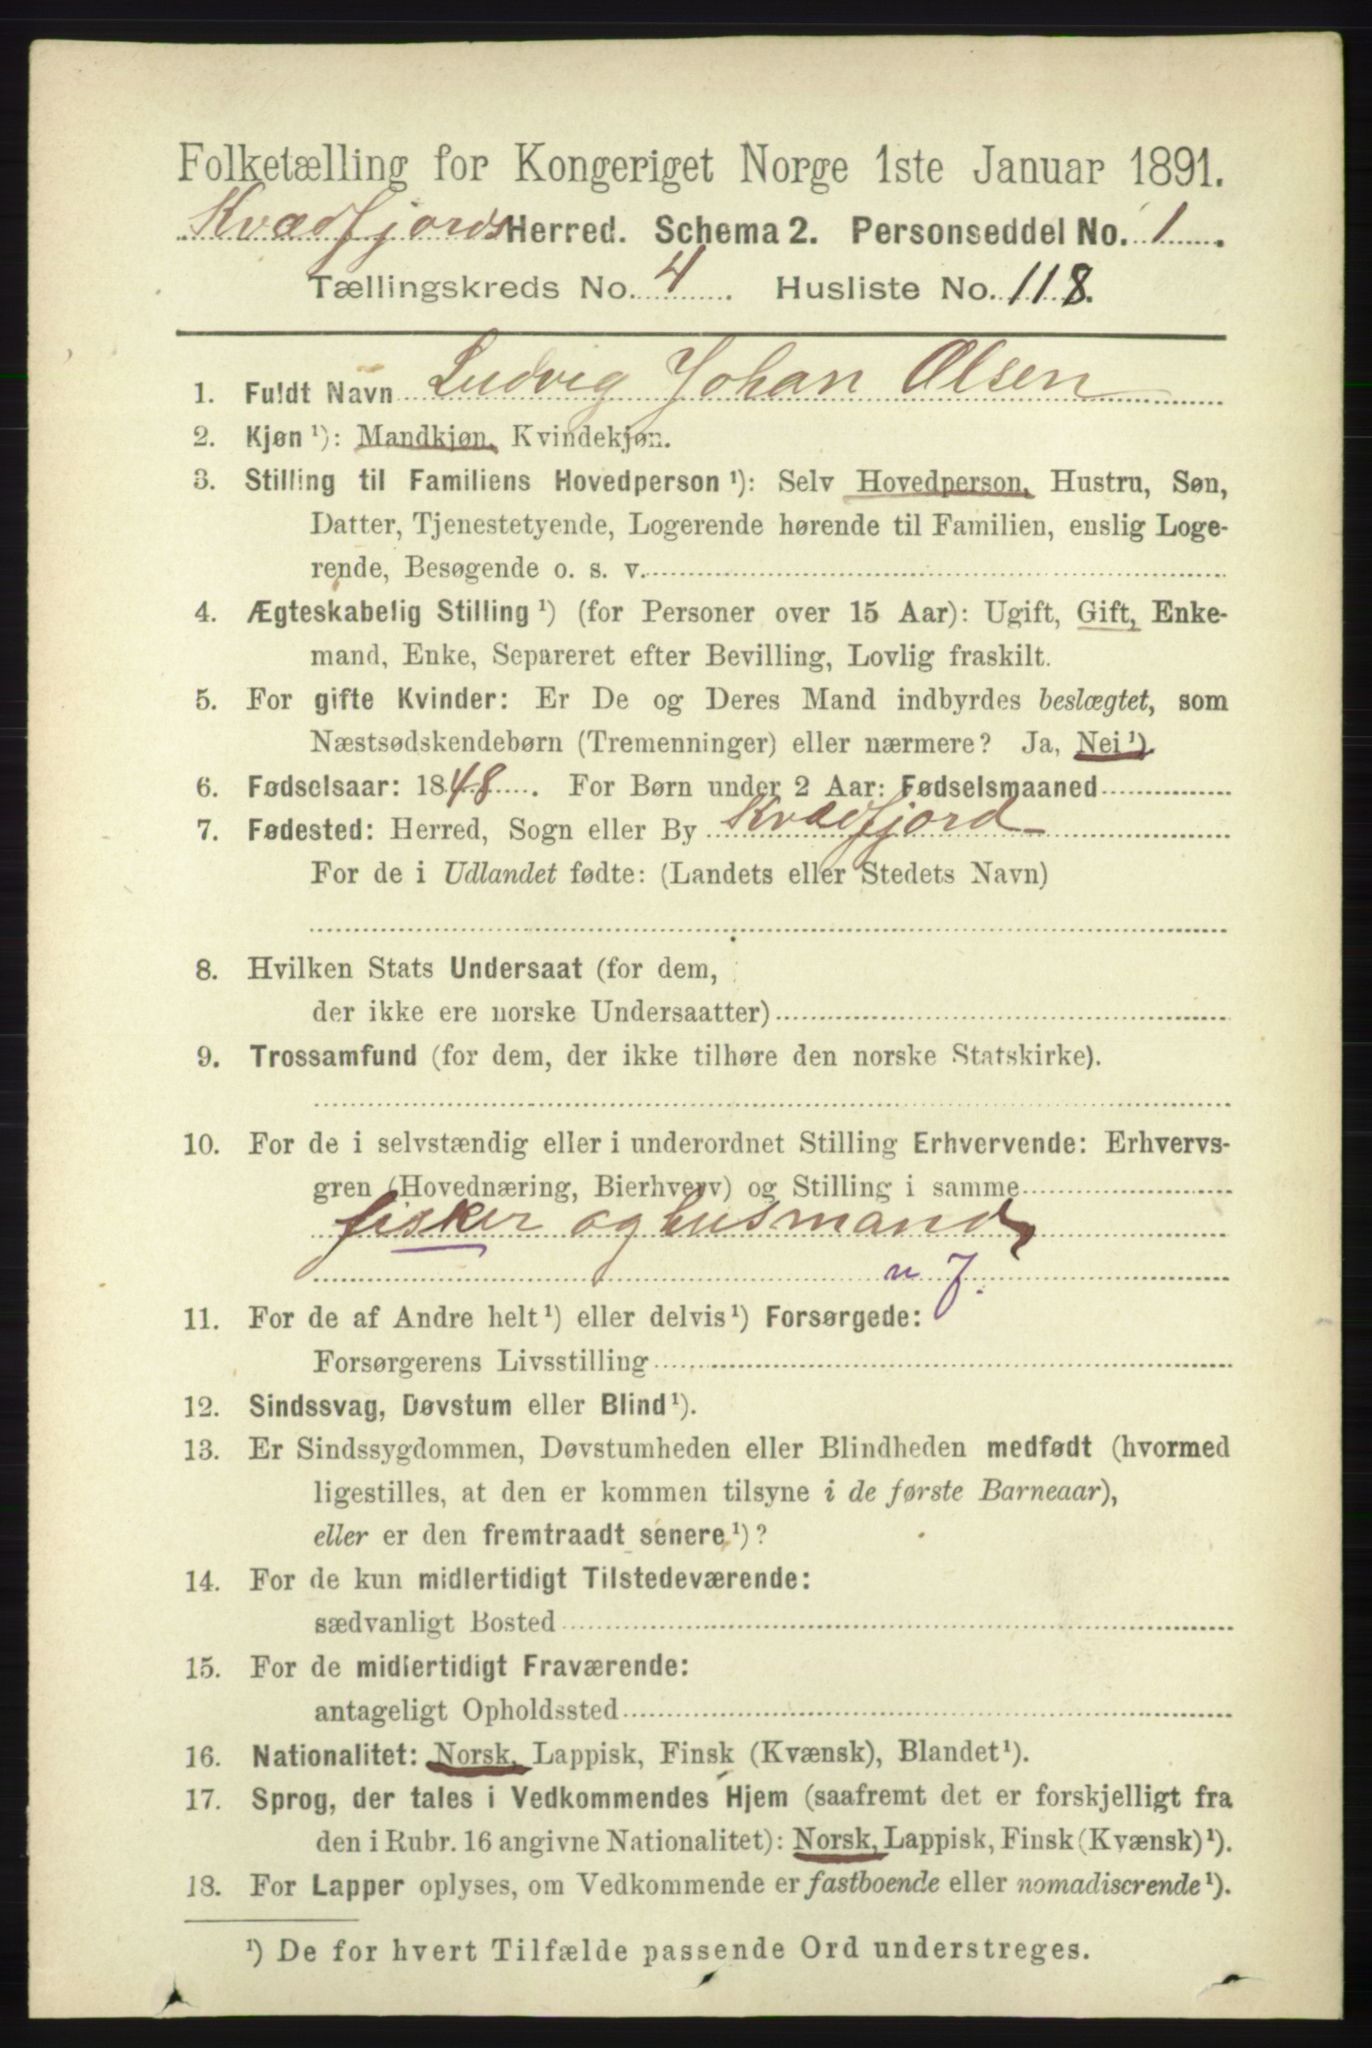 Folketælling for Kongeriget Norge 1ste Januar 1891.
Kvædfjords Herred. Schema 2. Personseddel No. 1.
Tællingskreds No. 4. Husliste No. 118.
1. Fuldt Navn Ludvig Johan Olsen
2. Kjøn ¹): Mandkjøn, Kvindekjøn.
3. Stilling til Familiens Hovedperson ¹): Selv Hovedperson, Hustru, Søn,
Datter, Tjenestetyende, Logerende hørende til Familien, enslig Loge-
rende, Besøgende o. s. v.
4. Ægteskabelig Stilling ¹) (for Personer over 15 Aar): Ugift, Gift, Enke-
mand, Enke, Separeret efter Bevilling, Lovlig fraskilt.
5. For gifte Kvinder: Er De og Deres Mand indbyrdes beslægtet, som
Næstsødskendebørn (Tremenninger) eller nærmere? Ja, Nei ¹)
6. Fødselsaar: 1848. For Børn under 2 Aar: Fødselsmaaned
7. Fødested: Herred, Sogn eller By Kvædfjord
For de i Udlandet fødte: (Landets eller Stedets Navn)
8. Hvilken Stats Undersaat (for dem,
der ikke ere norske Undersaatter)
9. Trossamfund (for dem, der ikke tilhøre den norske Statskirke).
10. For de i selvstændig eller i underordnet Stilling Erhvervende: Erhvervs-
gren (Hovednæring, Bierhverv) og Stilling i samme
fisker og husmand,
u J.
11. For de af Andre helt ¹) eller delvis ¹) Forsørgede:
Forsørgerens Livsstilling
12. Sindssvag, Døvstum eller Blind ¹).
13. Er Sindssygdommen, Døvstumheden eller Blindheden medfødt (hvormed
ligestilles, at den er kommen tilsyne i de første Barneaar),
eller er den fremtraadt senere ¹)?
14. For de kun midlertidigt Tilstedeværende:
sædvanligt Bosted
15. For de midlertidigt Fraværende:
antageligt Opholdssted
16. Nationalitet: Norsk, Lappisk, Finsk (Kvænsk), Blandet ¹).
17. Sprog, der tales i Vedkommendes Hjem (saafremt det er forskjelligt fra
den i Rubr. 16 angivne Nationalitet): Norsk, Lappisk, Finsk (Kvænsk) ¹).
18. For Lapper oplyses, om Vedkommende er fastboende eller nomadiserende ¹).
¹) De for hvert Tilfælde passende Ord understreges.